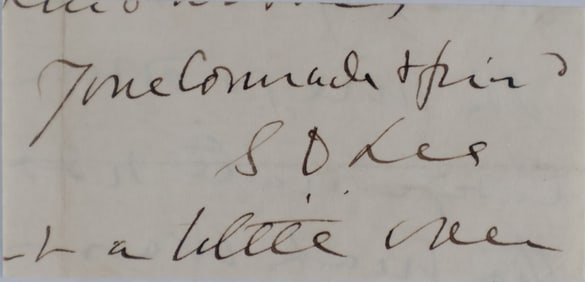 Your Comrade & friend
S D Lee
a little over